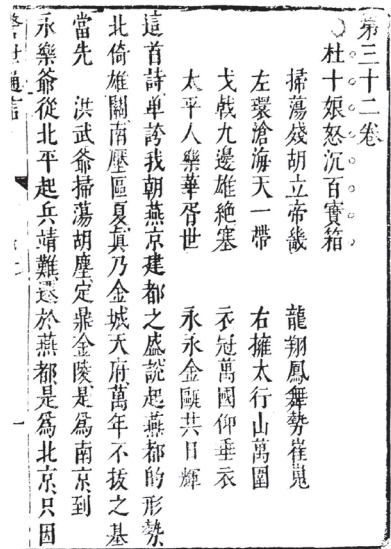 第三十二卷
杜十娘怒沉百寶箱
掃蕩殘胡立帝畿　龍翔鳳舞勢崔嵬
左環滄海天一帶　右擁太行山萬圍
戈戟九邊雄絕塞　衣冠萬國仰垂衣
太平人樂華胥世　永永金甌共日輝
這首詩单誇我朝燕京建都之盛說起燕都的形勢
北倚雄關南壓區夏眞乃金城天府萬年不拔之基
當先　洪武爺掃蕩胡塵定鼎金陵是爲南京到
永樂爺從北平起兵靖難遷於燕都是爲北京只因
警世通言　一